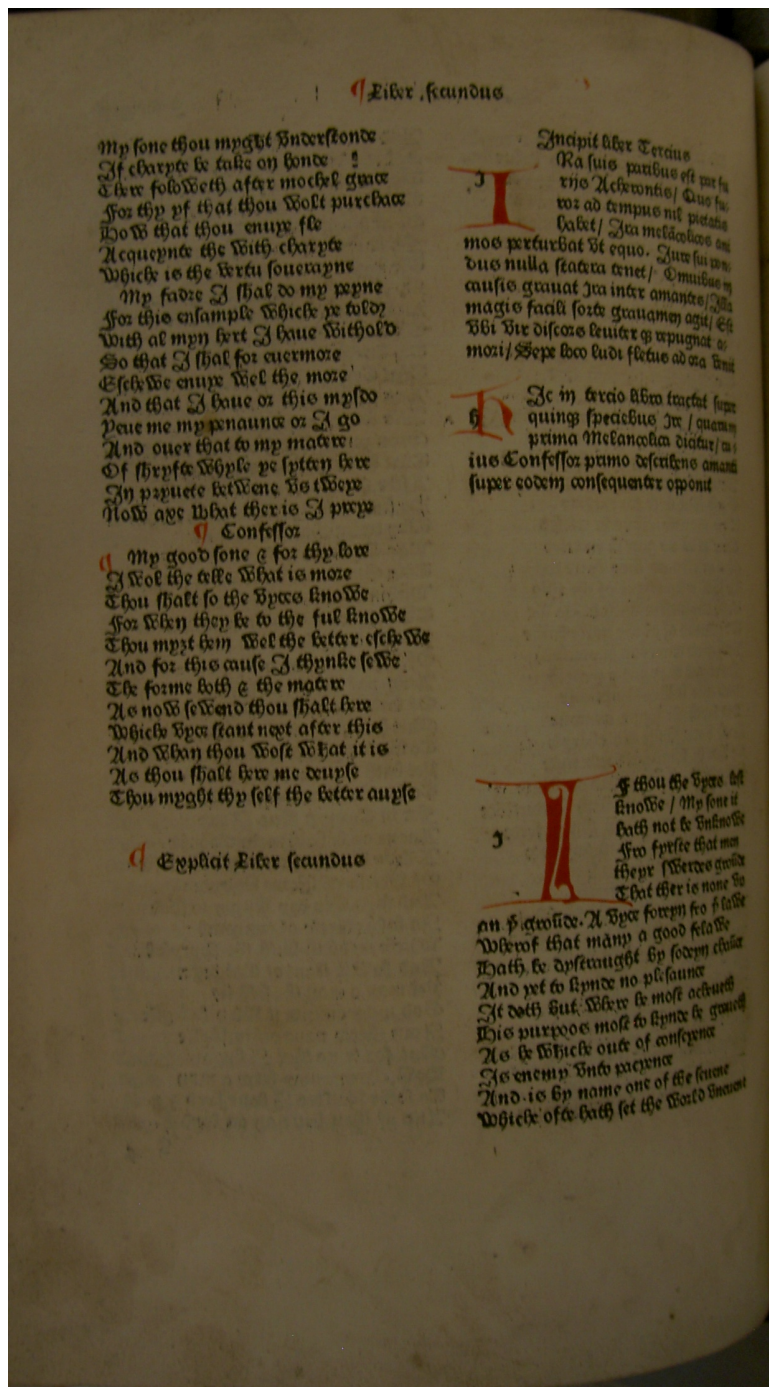 ¶ Liber secundus
My sone thou myght vnderstonde
If charyte be take on honde
There foloweth after mochel grace
For thy yf that thou wolt purchace
How that thou enuye fle
Acqueynte the with charyte
Whiche is the vertu souerayne
My fadre I shal do my peyne
For this ensample whiche ye told
With al myn hert I haue withold
So that I shal for euermore
Eschewe enuye wel the more
And that I haue or this mysdo
Yeue me my penaunce or I go
And ouer that to my matere
Of shryfte whyle ye sytten here
In pryuete betwene vs tweye
Now axe what ther is I preye
¶ Confessor
¶ My good sone & for thy lore
I wol the telle what is more
Thou shalt so the vyces knowe
For when they be to the ful knowe
Thou myȝt hem wel the better eschewe
And for this cause I thynke sewe
The forme both & the matere
As now sewend thou shalt here
Whiche vyce stant next after this
And whan thou wost what it is
As thou shalt here me deuyse
Thou myght thy self the better auyse
¶ Explicit Liber secundus
Incipit liber Tercius
I Ra suis paribus est par fu
rijs Acherontis/ Quo fu
ror ad tempus nil pietatis
habet/ Ira melācolicos ani
mos perturbat vt equo. Jure sui
dus nulla statera tenet/ Omnibus in
causis grauat ira inter amantes/ Illa
magis facili sorte grauamen agit/ Est
vbi vir discors leuiter qȝ repugnat a
mori/ Sepe loco ludi fletus ad ora venit
h Ic in tercio libro tractat super
quinqȝ speciebus Ire / quarum
prima Melancolica dicitur/ cu
ius Confessor primo describens amanti
super eodem consequenter opponit
I F thou the vyces lest
knowe / My sone it
hath not be vnknowe
Fro fyrste that men
theyr swerdes groūde
That ther is none vp
on þͭ groūde. A vyce foreyn fro þͤ lawe
Wherof that many a good felawe
Hath be dystraught by sodeyn chaūce
And yet to kynde no plesaunce
It doth but where he most acheueth
His purpoos most to kynde he greueth
As he whiche oute of conscyence
Is enemy vnto pacyence
And is by name one of the seuene
Whiche ofte hath set the world vneuene